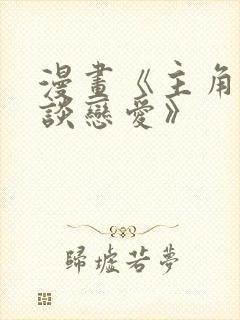 漫畫《主角
談戀愛》
歸墟若夢